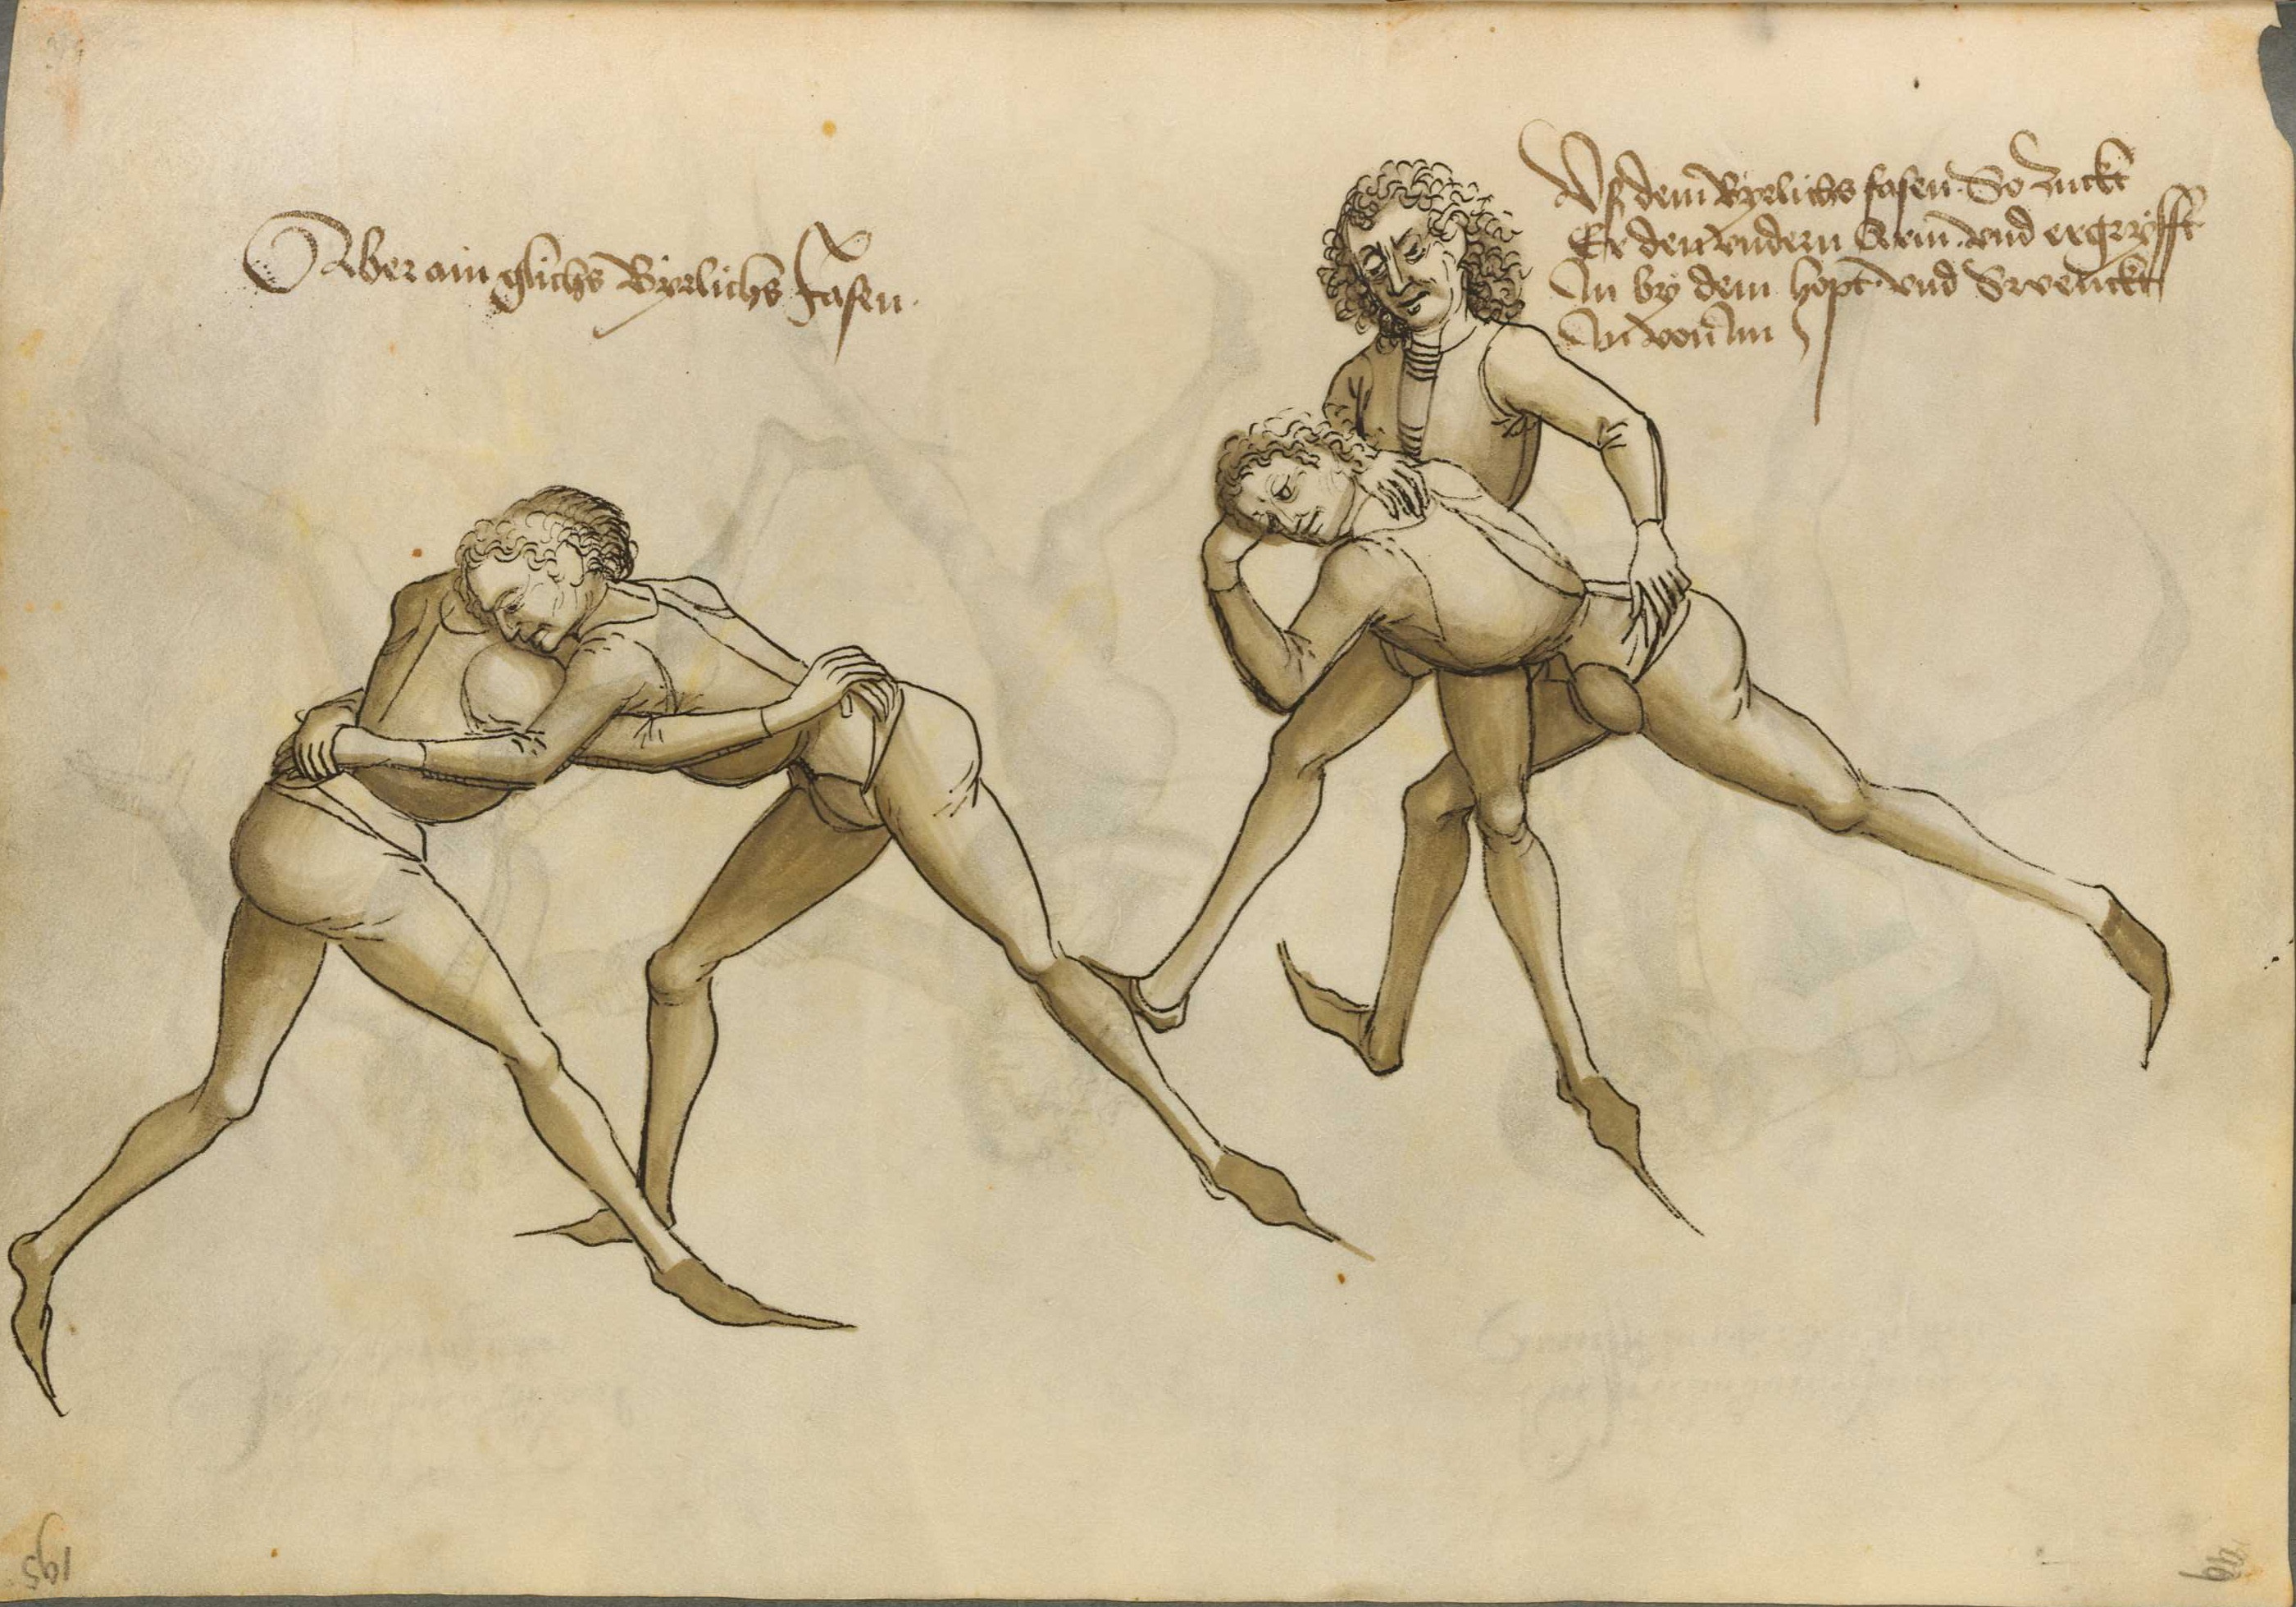 Aber ain glichs Byrlichs fasen.
Vß dem Byrlichs fasen So zuckt
Er den vndern Arm. vnd ergryfft
In by dem hopt vnd Swenckt
In von Im
195